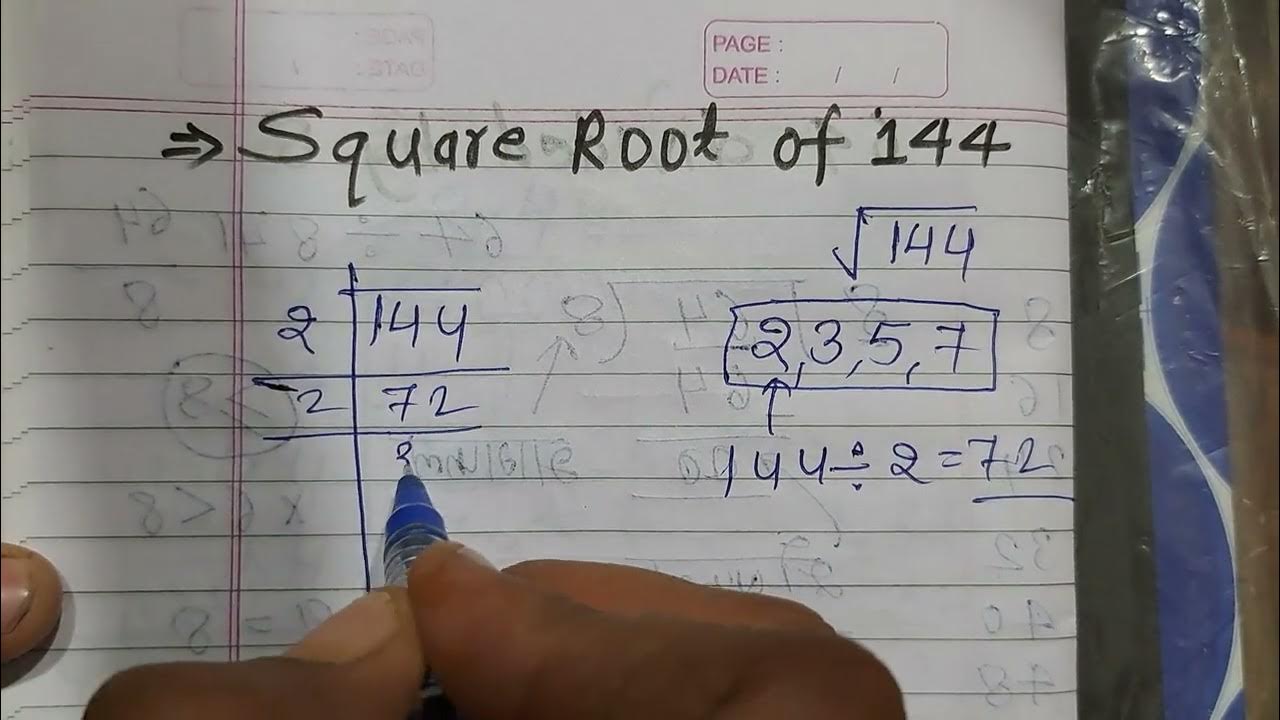 PAGE :
DATE : / /
⇒ Square Root of 144
√144
2 144
2 72
3
2, 3, 5, 7
144 ÷ 2 = 72